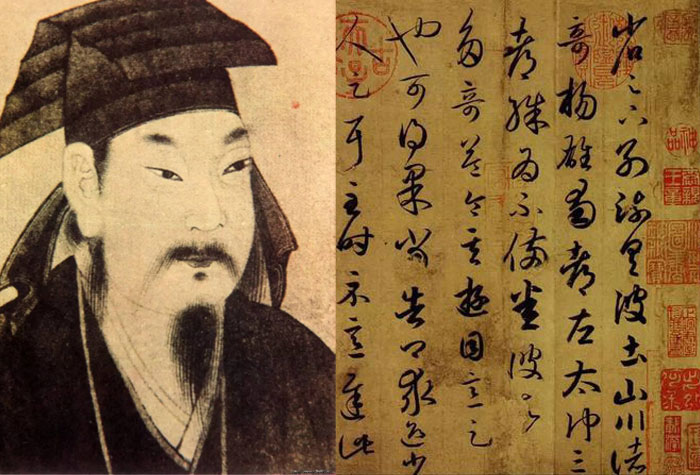 省足下別疏具彼土山川諸
奇楊雄蜀都左太沖三
都殊為不備悉彼故
多奇益令其遊目意足
也可得果當告卿求迎少
人足耳至時示意遲此